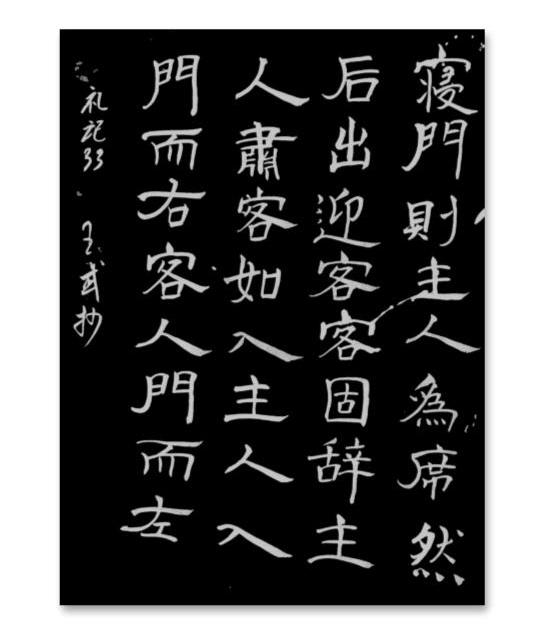 寢門則主人為席然
后出迎客客固辞主
人肅客如入主人入
門而右客人門而左
礼記33 王武抄